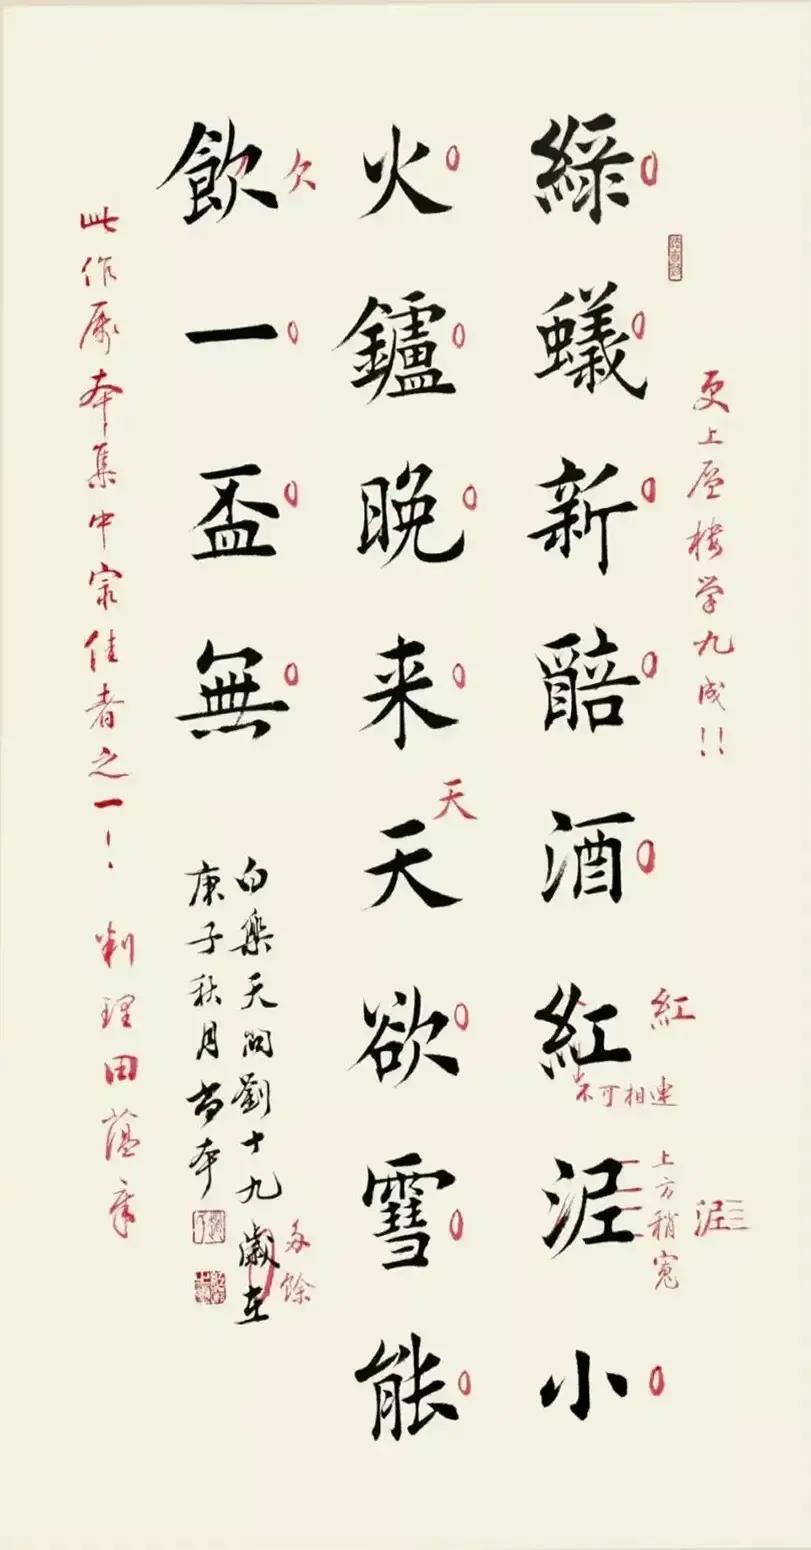 更上层楼学九成!!
綠蟻新醅酒紅泥小
紅
不可相連
上方稍寬
泥
火鑪晚来天欲雪能
天
飲一盃無
欠
白樂天問劉十九歲在
多餘
庚子秋月
此作属本集中最佳者之一！
判理田蘊章